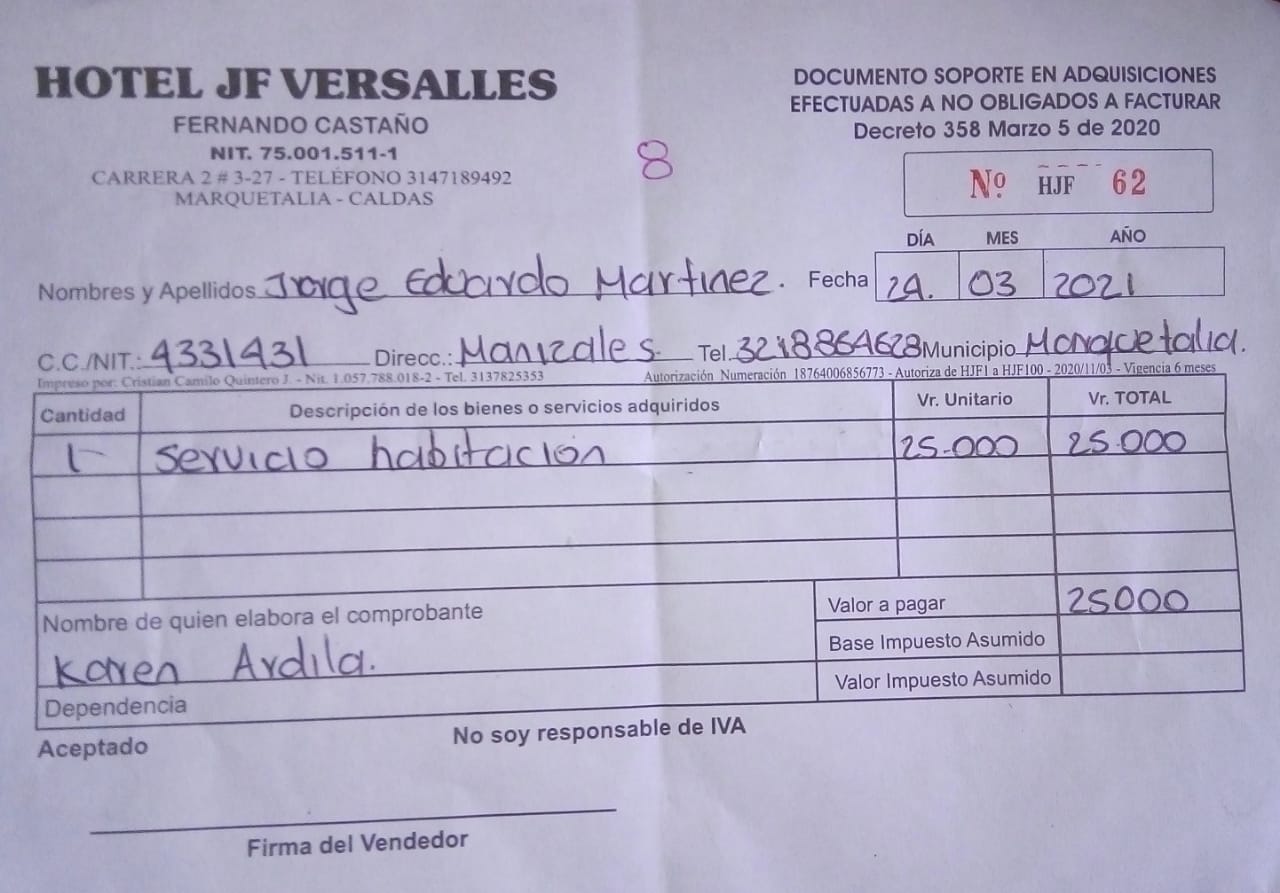 HOTEL JF VERSALLES
FERNANDO CASTAÑO
NIT. 75.001.511-1
CARRERA 2 # 3-27 - TELÉFONO 3147189492
MARQUETALIA - CALDAS
8
DOCUMENTO SOPORTE EN ADQUISICIONES
EFECTUADAS A NO OBLIGADOS A FACTURAR
Decreto 358 Marzo 5 de 2020
Nº HJF 62
DÍA MES AÑO
Nombres y Apellidos Jorge Eduardo Martinez. Fecha 29. 03 2021
C.C./NIT.: 4331431 Direcc.: Manizales. Tel. 3218864628 Municipio Marquetalia.
Impreso por: Cristian Camilo Quintero J. - Nit. 1.057.788.018-2 - Tel. 3137825353 Autorización Numeración 18764006856773 - Autoriza de HJF1 a HJF100 - 2020/11/03 - Vigencia 6 meses
Cantidad Descripción de los bienes o servicios adquiridos Vr. Unitario Vr. TOTAL
1- servicio habitación 25.000 25.000
Nombre de quien elabora el comprobante Valor a pagar 25000
Karen Ardila. Base Impuesto Asumido
Dependencia Valor Impuesto Asumido
Aceptado No soy responsable de IVA
Firma del Vendedor